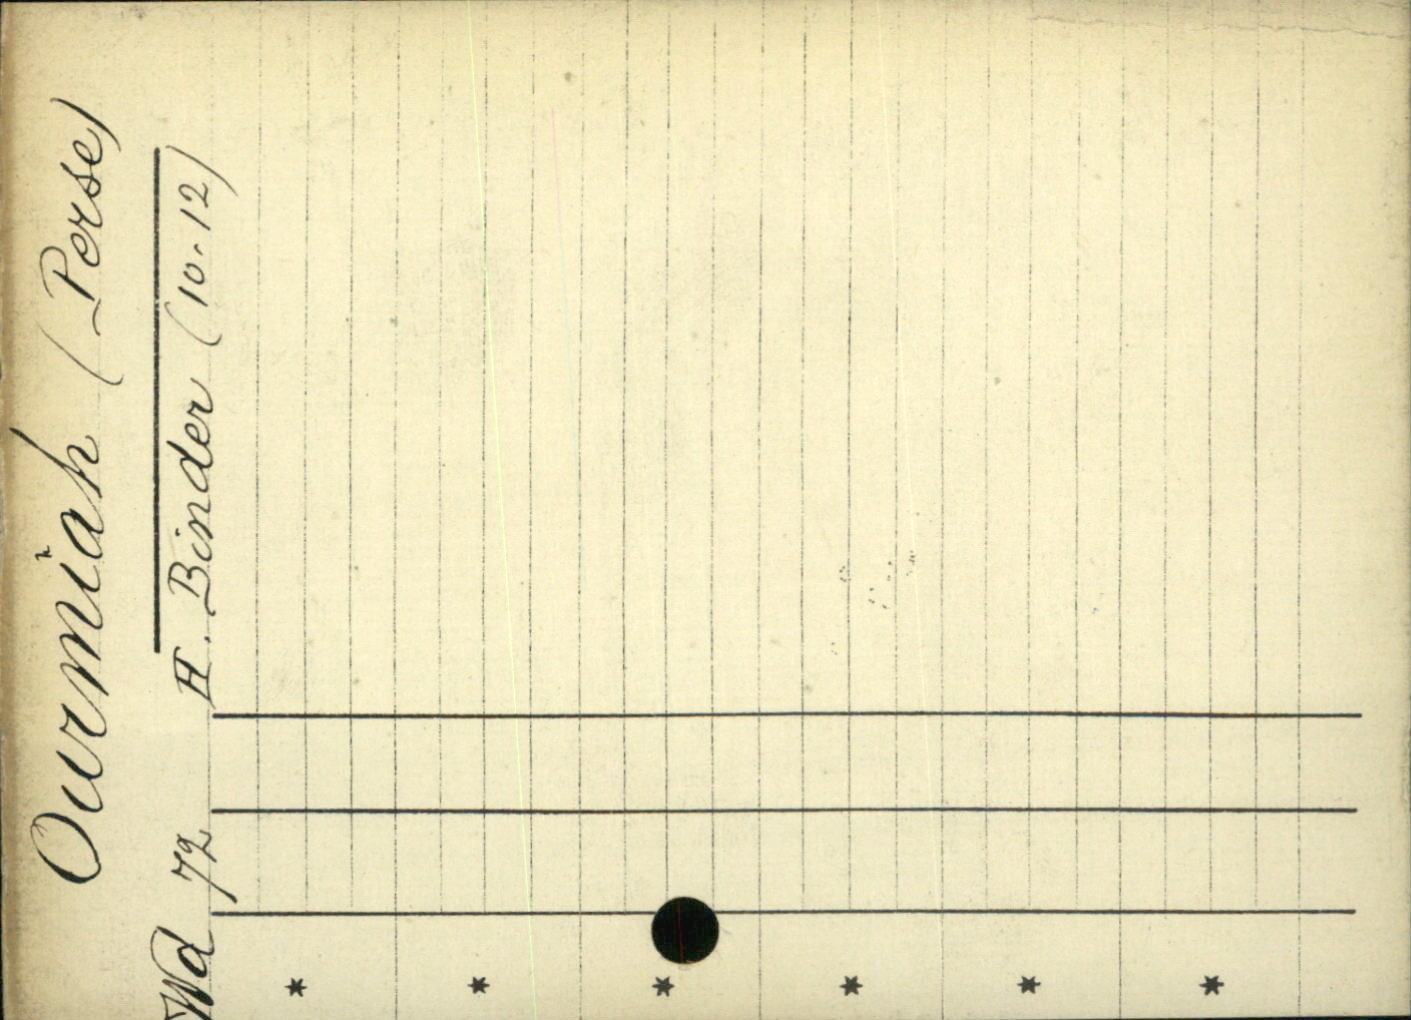 Ourmiah (Perse)
Wd 72 H. Binder (10-12)